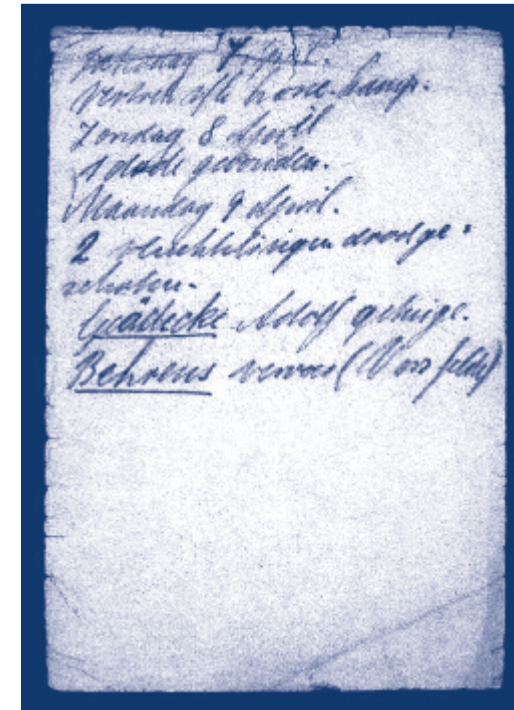 Zaterdag 7 April.
Vertrek kamp.
Zondag 8 April
1 doode gevonden.
Maandag 9 April.
2 vluchtelingen doodge-
schoten.
Gädecke Adolf getuige.
Behrens vervoer (Vorsfelde)